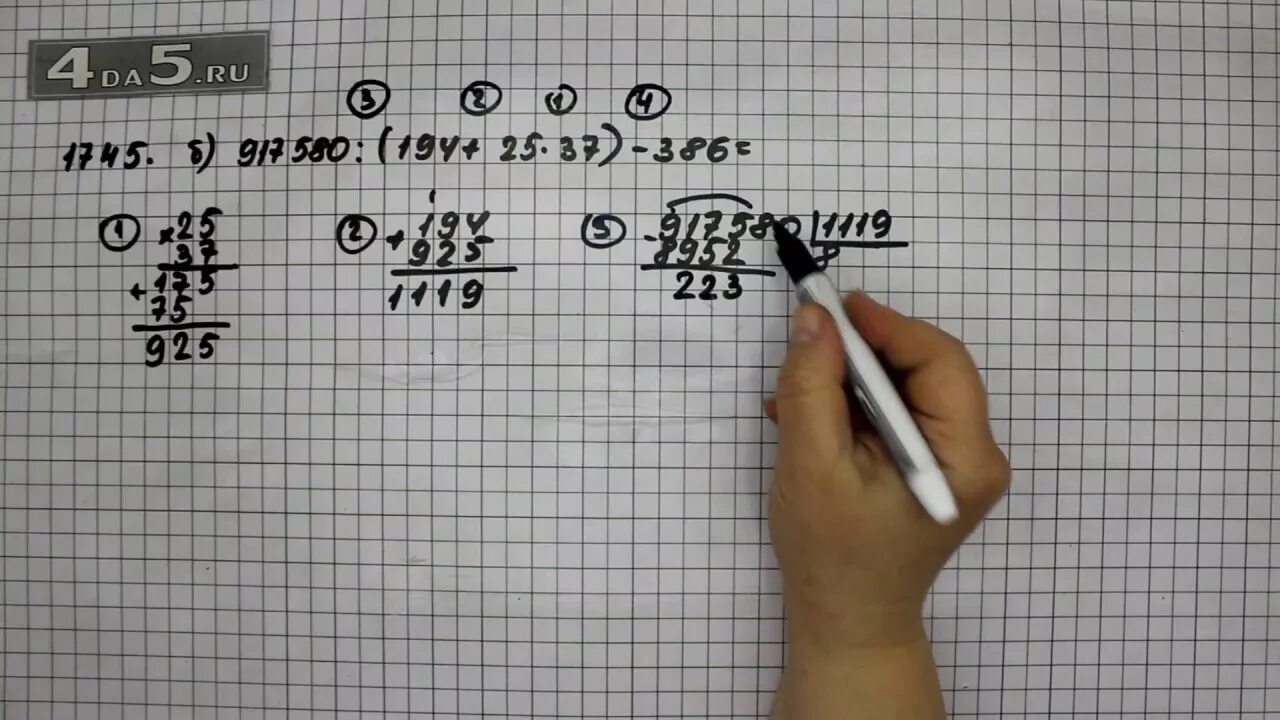 4DA5.RU
③ ② ① ④
1745. б) 917580:(194+ 25·37) -386=
① ×25
37
+175
75
925
② 1
+194
925
1119
③ -917580 |1119
8952 8
223